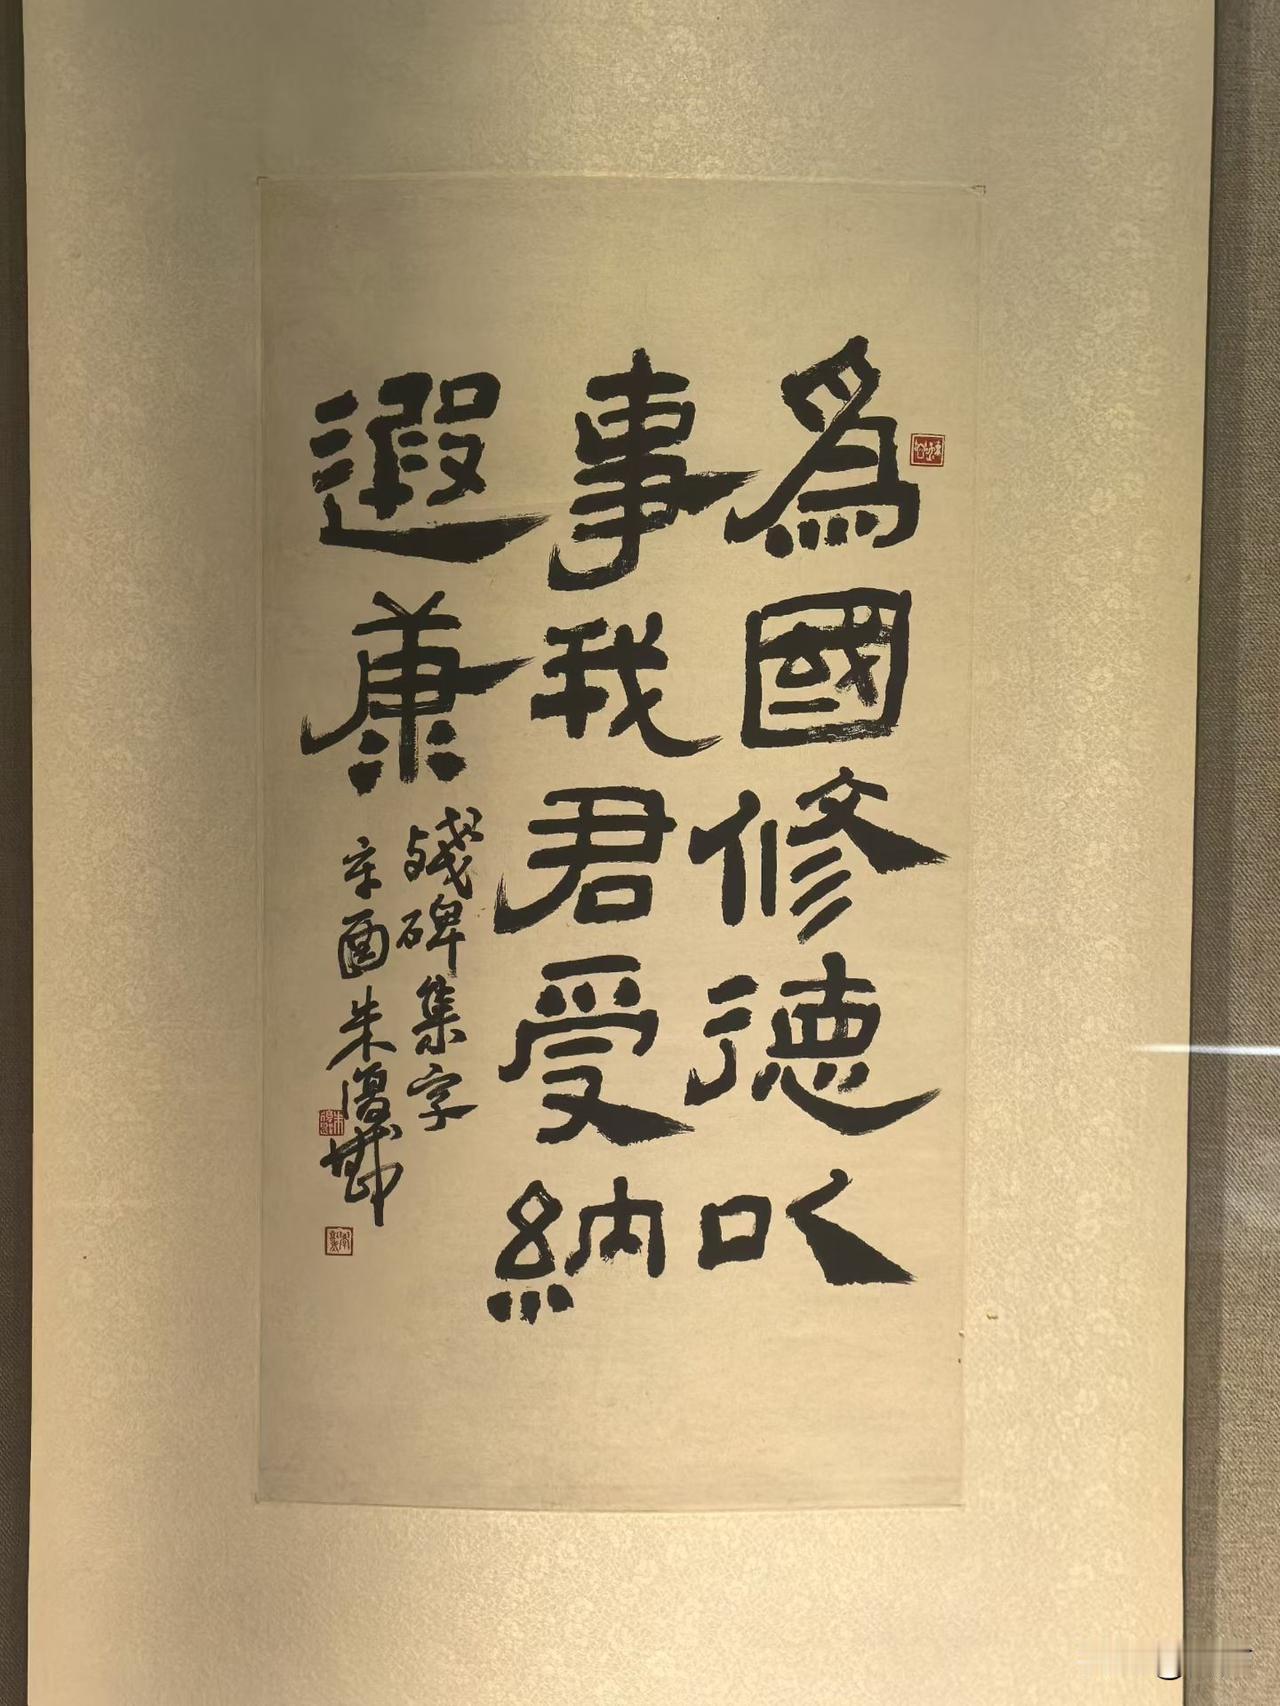 為國修德以
事我君受納
遐康
殘碑集字
辛酉朱復戡